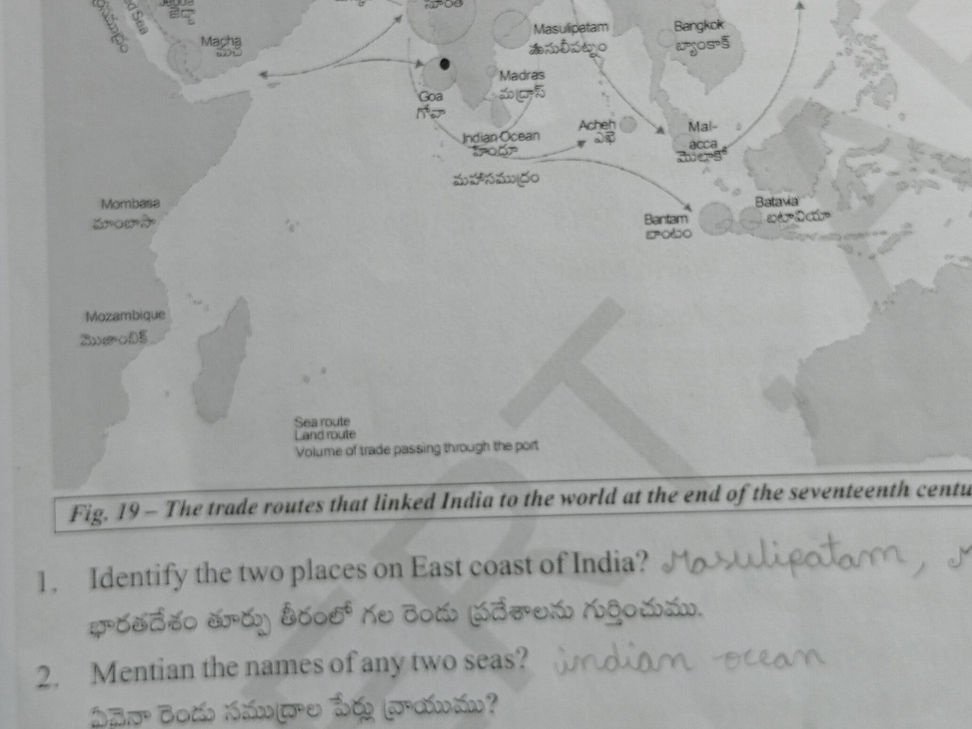 Red Sea
Macha
మచ
Masulipatam
మసులీపట్నం
Bangkok
బ్యాంకాక్
Madras
మద్రాస్
Goa
గోవా
Indian Ocean
హిందూ
మహాసముద్రం
Acheh
ఎఖె
Mal-
acca
మొల్లాకో
Mombasa
మాంబాసా
Bantam
బాంటం
Batavia
బటావియా
Mozambique
మొజాంబిక్
Sea route
Land route
Volume of trade passing through the port
Fig. 19 – The trade routes that linked India to the world at the end of the seventeenth centu
1. Identify the two places on East coast of India? Masulipatam,
భారతదేశం తూర్పు తీరంలో గల రెండు ప్రదేశాలను గుర్తించుము.
2. Mentian the names of any two seas? indian ocean
ఏవైనా రెండు సముద్రాల పేర్లు వ్రాయుము?